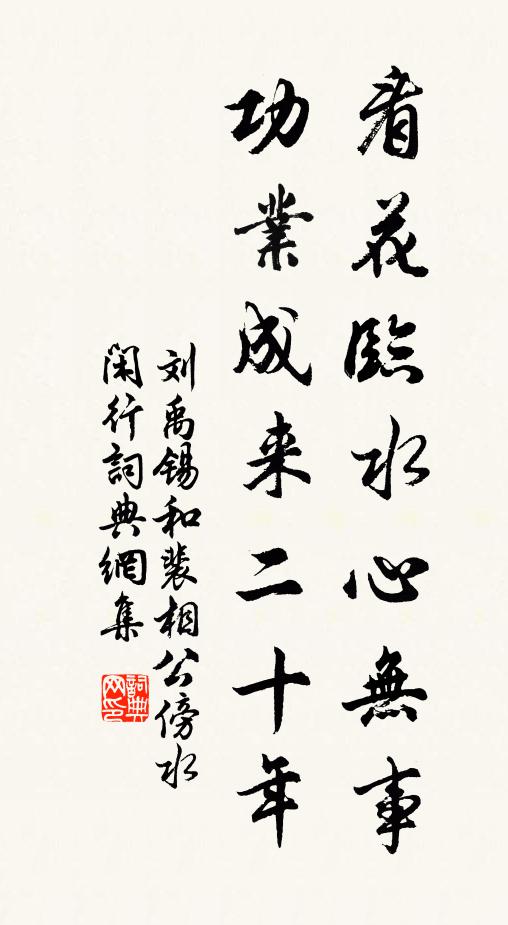 看花臨水心無事
功業成来二十年
刘禹錫和裴相公傍水
閑行詞典網集
詞典
网印